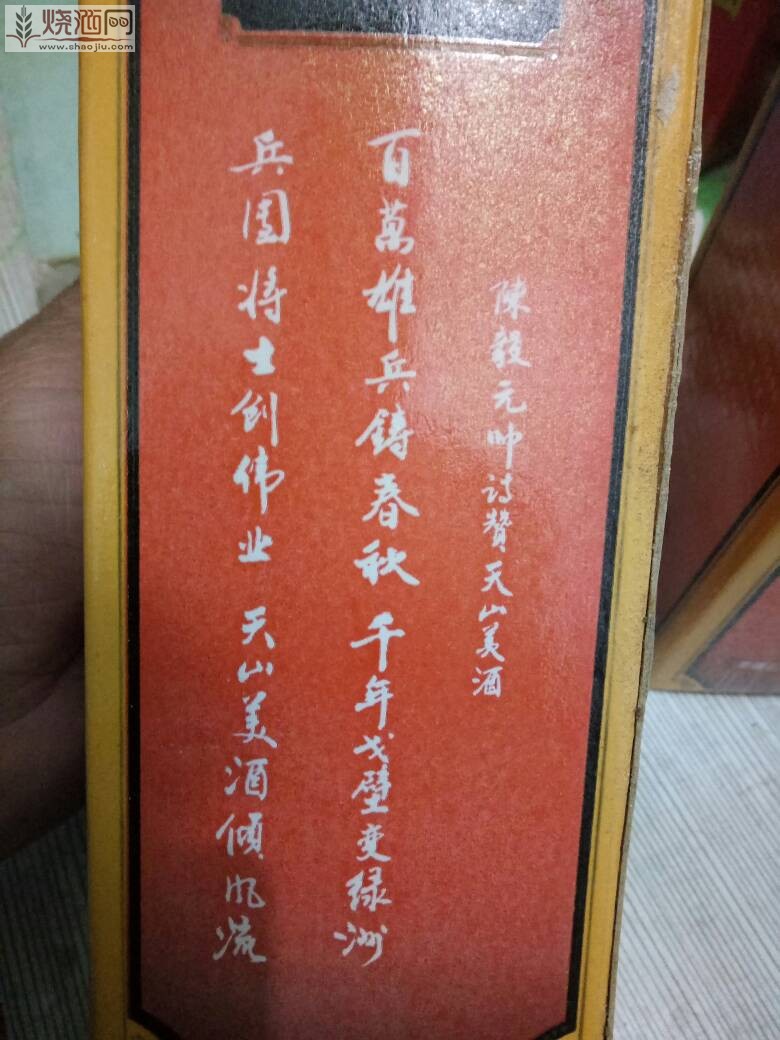 烧酒网
www.shaojiu.com
陳毅元帅诗赞天山美酒
百萬雄兵鑄春秋 千年戈壁变绿洲
兵團将士创伟业 天山美酒倾风流